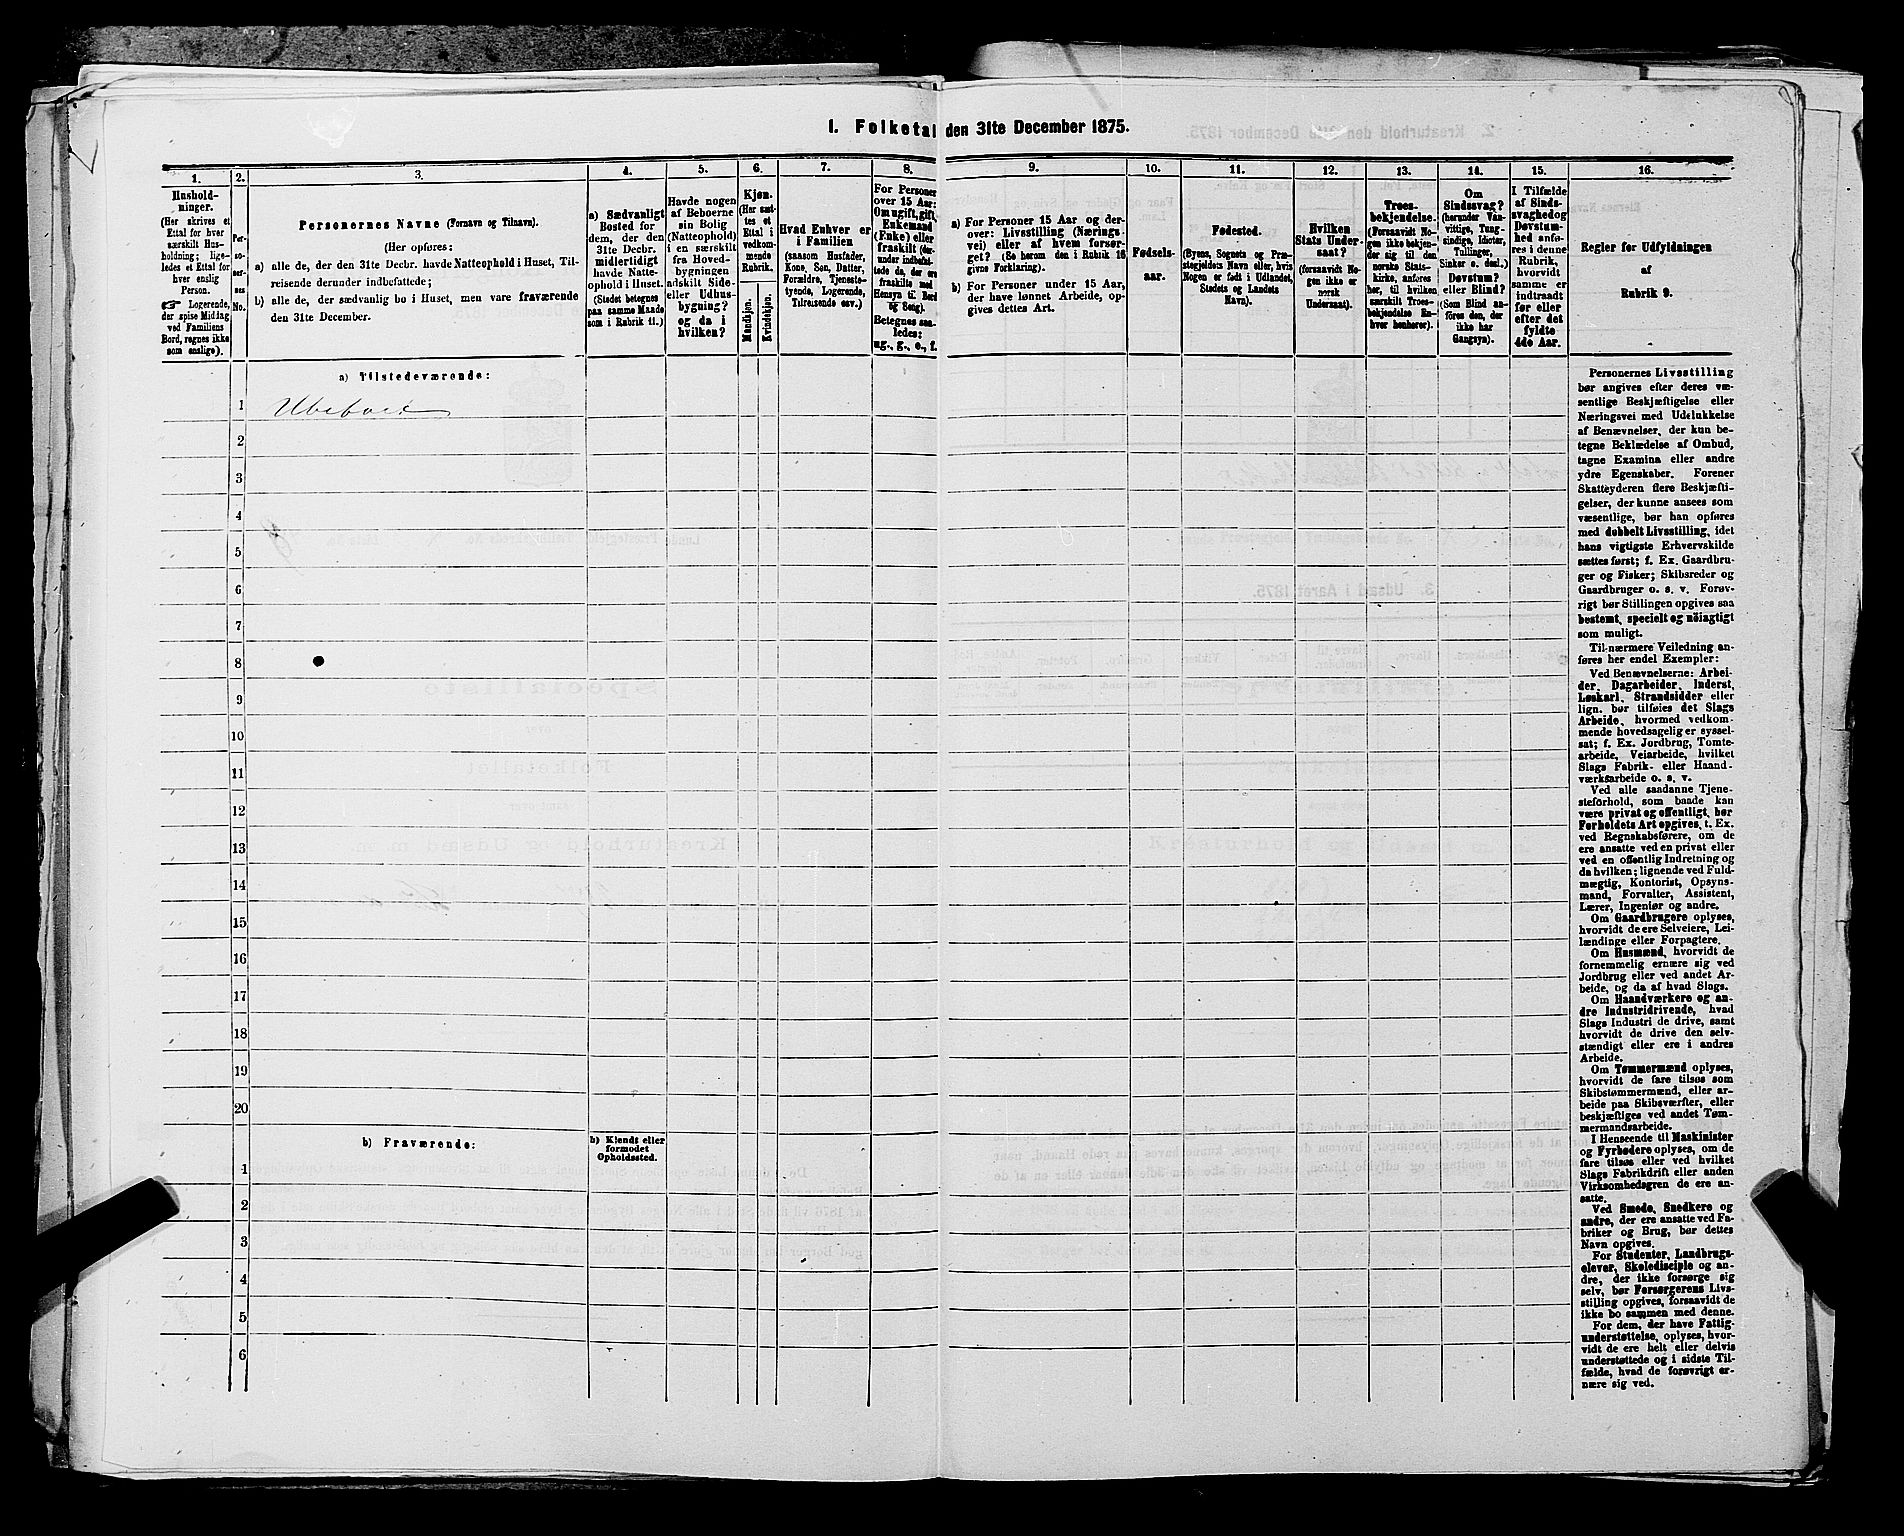 I. Folketal den 31te December 1875.
1.
Husholdninger.
(Her skrives et
Ettal for hver
særskilt Husholdning; ligeledes et Ettal for
hver enslig
Person.
☞ Logerende,
der spise Middag
ved Familiens
Bord, regnes ikke
som enslige).
2.
Personernes
No.
3.
Personernes Navne (Fornavn og Tilnavn).
(Her opføres:
a) alle de, der den 31te Decbr. havde Natteophold i Huset, Tilreisende derunder indbefattede;
b) alle de, der sædvanlig bo i Huset, men vare fraværende
den 31te December.
4.
a) Sædvanligt
Bosted for
dem, der den
31te Decbr.
midlertidigt
havde Natteophold i Huset.
(Stedet betegnes
paa samme Maade
som i Rubrik 11.)
5.
Havde nogen
af Beboerne
sin Bolig
(Natteophold)
i en særskilt
fra Hovedbygningen
adskilt Side-
eller Udhusbygning?
og da i
hvilken?
6.
Kjøn.
(Her sættes et
Ettal i
vedkommende
Rubrik.
Mandkjøn.
Kvindekjøn.
7.
Hvad Enhver er
i Familien
(saasom Husfader,
Kone, Søn, Datter,
Forældre, Tjenestetyende, Logerende,
Tilreisende osv.)
8.
For Personer
over 15 Aar:
Om ugift, gift,
Enkemand
(Enke) eller
fraskilt (derunder indbefattede da, der ere
fraskilte med
Hensyn til Bord
og Seng).
Betegnes saaledes:
ug., g., e., f.
9.
a) For Personer 15 Aar og derover: Livsstilling (Næringsvei) eller af hvem forsørget? (Se herom den i Rubrik 16
givne Forklaring).
b) For Personer under 15 Aar,
der have lønnet Arbeide, opgives dettes Art.
10.
Fødselsaar.
11.
Fødested.
(Byens, Sognets og Præstegjeldets Navn eller, hvis
Nogen er født i Udlandet,
Stedets og Landets
Navn).
12.
Hvilken
Stats Undersaat?
(forsaavidt Nogen ikke er
norsk
Undersaat).
13.
Troesbekjendelse.
(Forsaavidt Nogen ikke bekjender sig til den
norske Statskirke, anføres
her, til hvilken
særskilt Troesbekjendelse Enhver henhører).
14.
Om
Sindssvag?
(herunder Vanvittige, Tungsindige, Idioter,
Tullinger,
Sinker o. desl.)
Døvstum?
eller Blind?
(Som Blind anføres den, der
ikke har
Gangsyn).
15.
I Tilfælde
af Sindssvaghed og
Døvstumhed anføres i denne
Rubrik,
hvorvidt
samme er
indtraadt
før eller
efter det
fyldte
4de Aar.
16.
Regler for Udfyldningen
af
Rubrik 9.
a) Tilstedeværende:
1 Ubeboet
2
3
4
5
6
7
8
9
10
11
12
13
14
15
16
17
18
19
20
b) Fraværende:
b) Kjendt eller
formodet
Opholdssted.
1
2
3
4
5
6
Personernes Livsstilling
bør angives efter deres væsentlige Beskjæftigelse eller
Næringsvei med Udelukkelse
af Benævnelser, der kun betegne Beklædelse af Ombud,
tagne Examina eller andre
ydre Egenskaber. Forener
Skatteyderen flere Beskjæftigelser, der kunne ansees som
væsentlige, bør han opføres
med dobbelt Livsstilling, idet
hans vigtigste Erhvervskilde
sættes først; f. Ex. Gaardbruger og Fisker; Skibsreder og
Gaardbruger o. s. v. Forøvrigt bør Stillingen opgives saa
bestemt, specielt og nöiagtigt
som muligt.
Til nærmere Veiledning anføres her endel Exempler:
Ved Benævnelserne: Arbeider, Dagarbeider, Inderst,
Løskarl, Strandsidder eller
lign. bør tilføies det Slags
Arbeide, hvormed vedkommende hovedsagelig er sysselsat; f. Ex. Jordbrug, Tomtearbeide, Veiarbeide, hvilket
Slags Fabrik- eller Haandværksarbeide o. s. v.
Ved alle saadanne Tjenesteforhold, som baade kan
være privat og offentligt, bør
Forholdets Art opgives, t. Ex.
ved Regnskabsførere, om de
ere ansatte ved en privat eller
ved en offentlig Indretning og
da hvilken; lignende ved Fuldmægtig, Kontorist, Opsynsmand, Forvalter, Assistent,
Lærer, Ingeniør og andre.
Om Gaardbrugere oplyses,
hvorvidt de ere Selveiere, Leilændinge eller Forpagtere.
Om Husmænd, hvorvidt de
fornemmelig ernære sig ved
Jordbrug eller ved andet Arbeide, og da af hvad Slags.
Om Haandværkere og andre Industridrivende, hvad
Slags Industri de drive, samt
hvorvidt de drive den selvstændigt eller ere i andres
Arbeide.
Om Tømmermænd oplyses,
hvorvidt de fare tilsøs som
Skibstømmermænd, eller arbeide paa Skibsværfter, eller
beskjæftiges ved andet Tømmermandsarbeide.
I Henseende til Maskinister
og Fyrbødere oplyses, om de
fare tilsøs eller ved hvilket
Slags Fabrikdrift eller anden
Virksomhedsgren de ere ansatte.
Ved Smede, Snedkere og
andre, der ere ansatte ved Fabriker og Brug, bør dettes
Navn opgives.
For Studenter, Landbrugselever, Skoledisciple og andre, der ikke forsørge sig
selv, bør Forsørgerens Livsstilling opgives, forsaavidt de
ikke bo sammen med denne.
For dem, der have Fattigunderstøttelse, oplyses, hvorvidt de ere helt eller delvis
understøttede og i sidste Tilfælde, hvad de forøvrigt ernære sig ved.